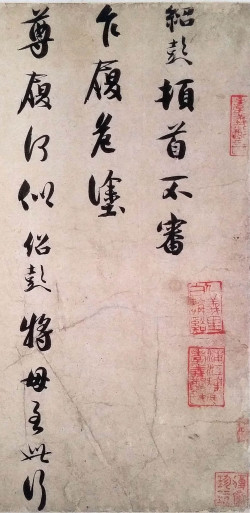 紹彭頓首不審
乍履危塗
尊履何似紹彭將母至此行